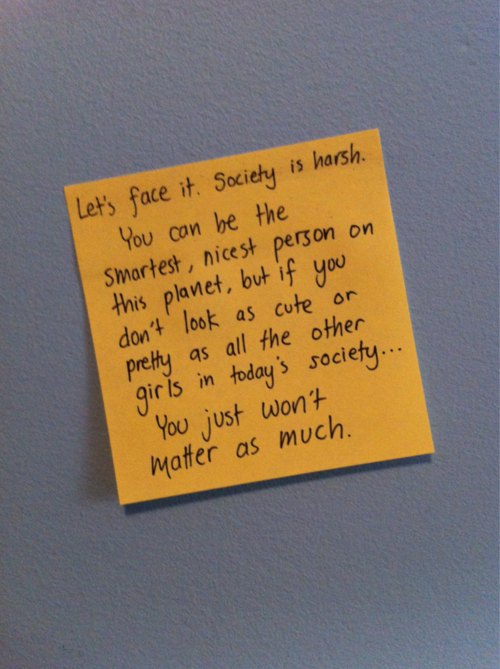 Let's face it. Society is harsh.
You can be the
smartest, nicest person on
this planet, but if you
don't look as cute or
pretty as all the other
girls in today's society...
You just won't
matter as much.